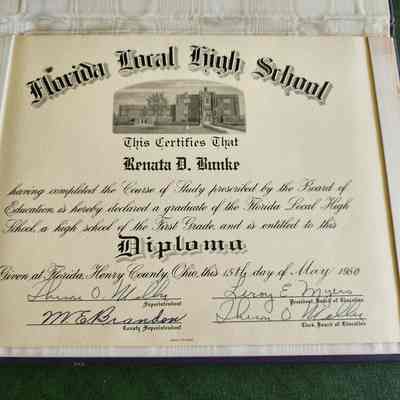 Florida Local High School
This Certifies That
Renata D. Bunke
having completed the Course of Study prescribed by the Board of
Education, is hereby declared a graduate of the Florida Local High
School, a high school of the First Grade, and is entitled to this
Diploma
Given at Florida, Henry County, Ohio, this 15th day of May 1960
Superintendent
Leroy E Myers
President Board of Education
M E Brandon
County Superintendent
Clerk Board of Education